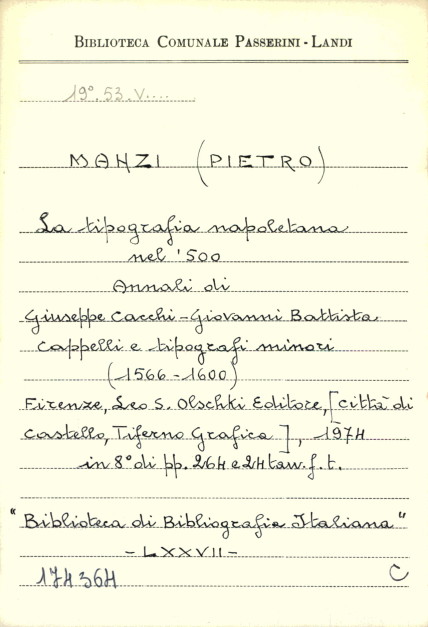 BIBLIOTECA COMUNALE PASSERINI - LANDI
19°. 53. V....
MANZI (PIETRO)
La tipografia napoletana
nel '500
Annali di
Giuseppe Cacchi - Giovanni Battista
Cappelli e tipografi minori
(1566 - 1600)
Firenze, Leo S. Olschki Editore, [Città di
Castello, Tiferno Grafica], 1974
in 8° di pp. 264 e 24 tav. f. t.
"Biblioteca di Bibliografia Italiana"
- LXXVII -
174364 C